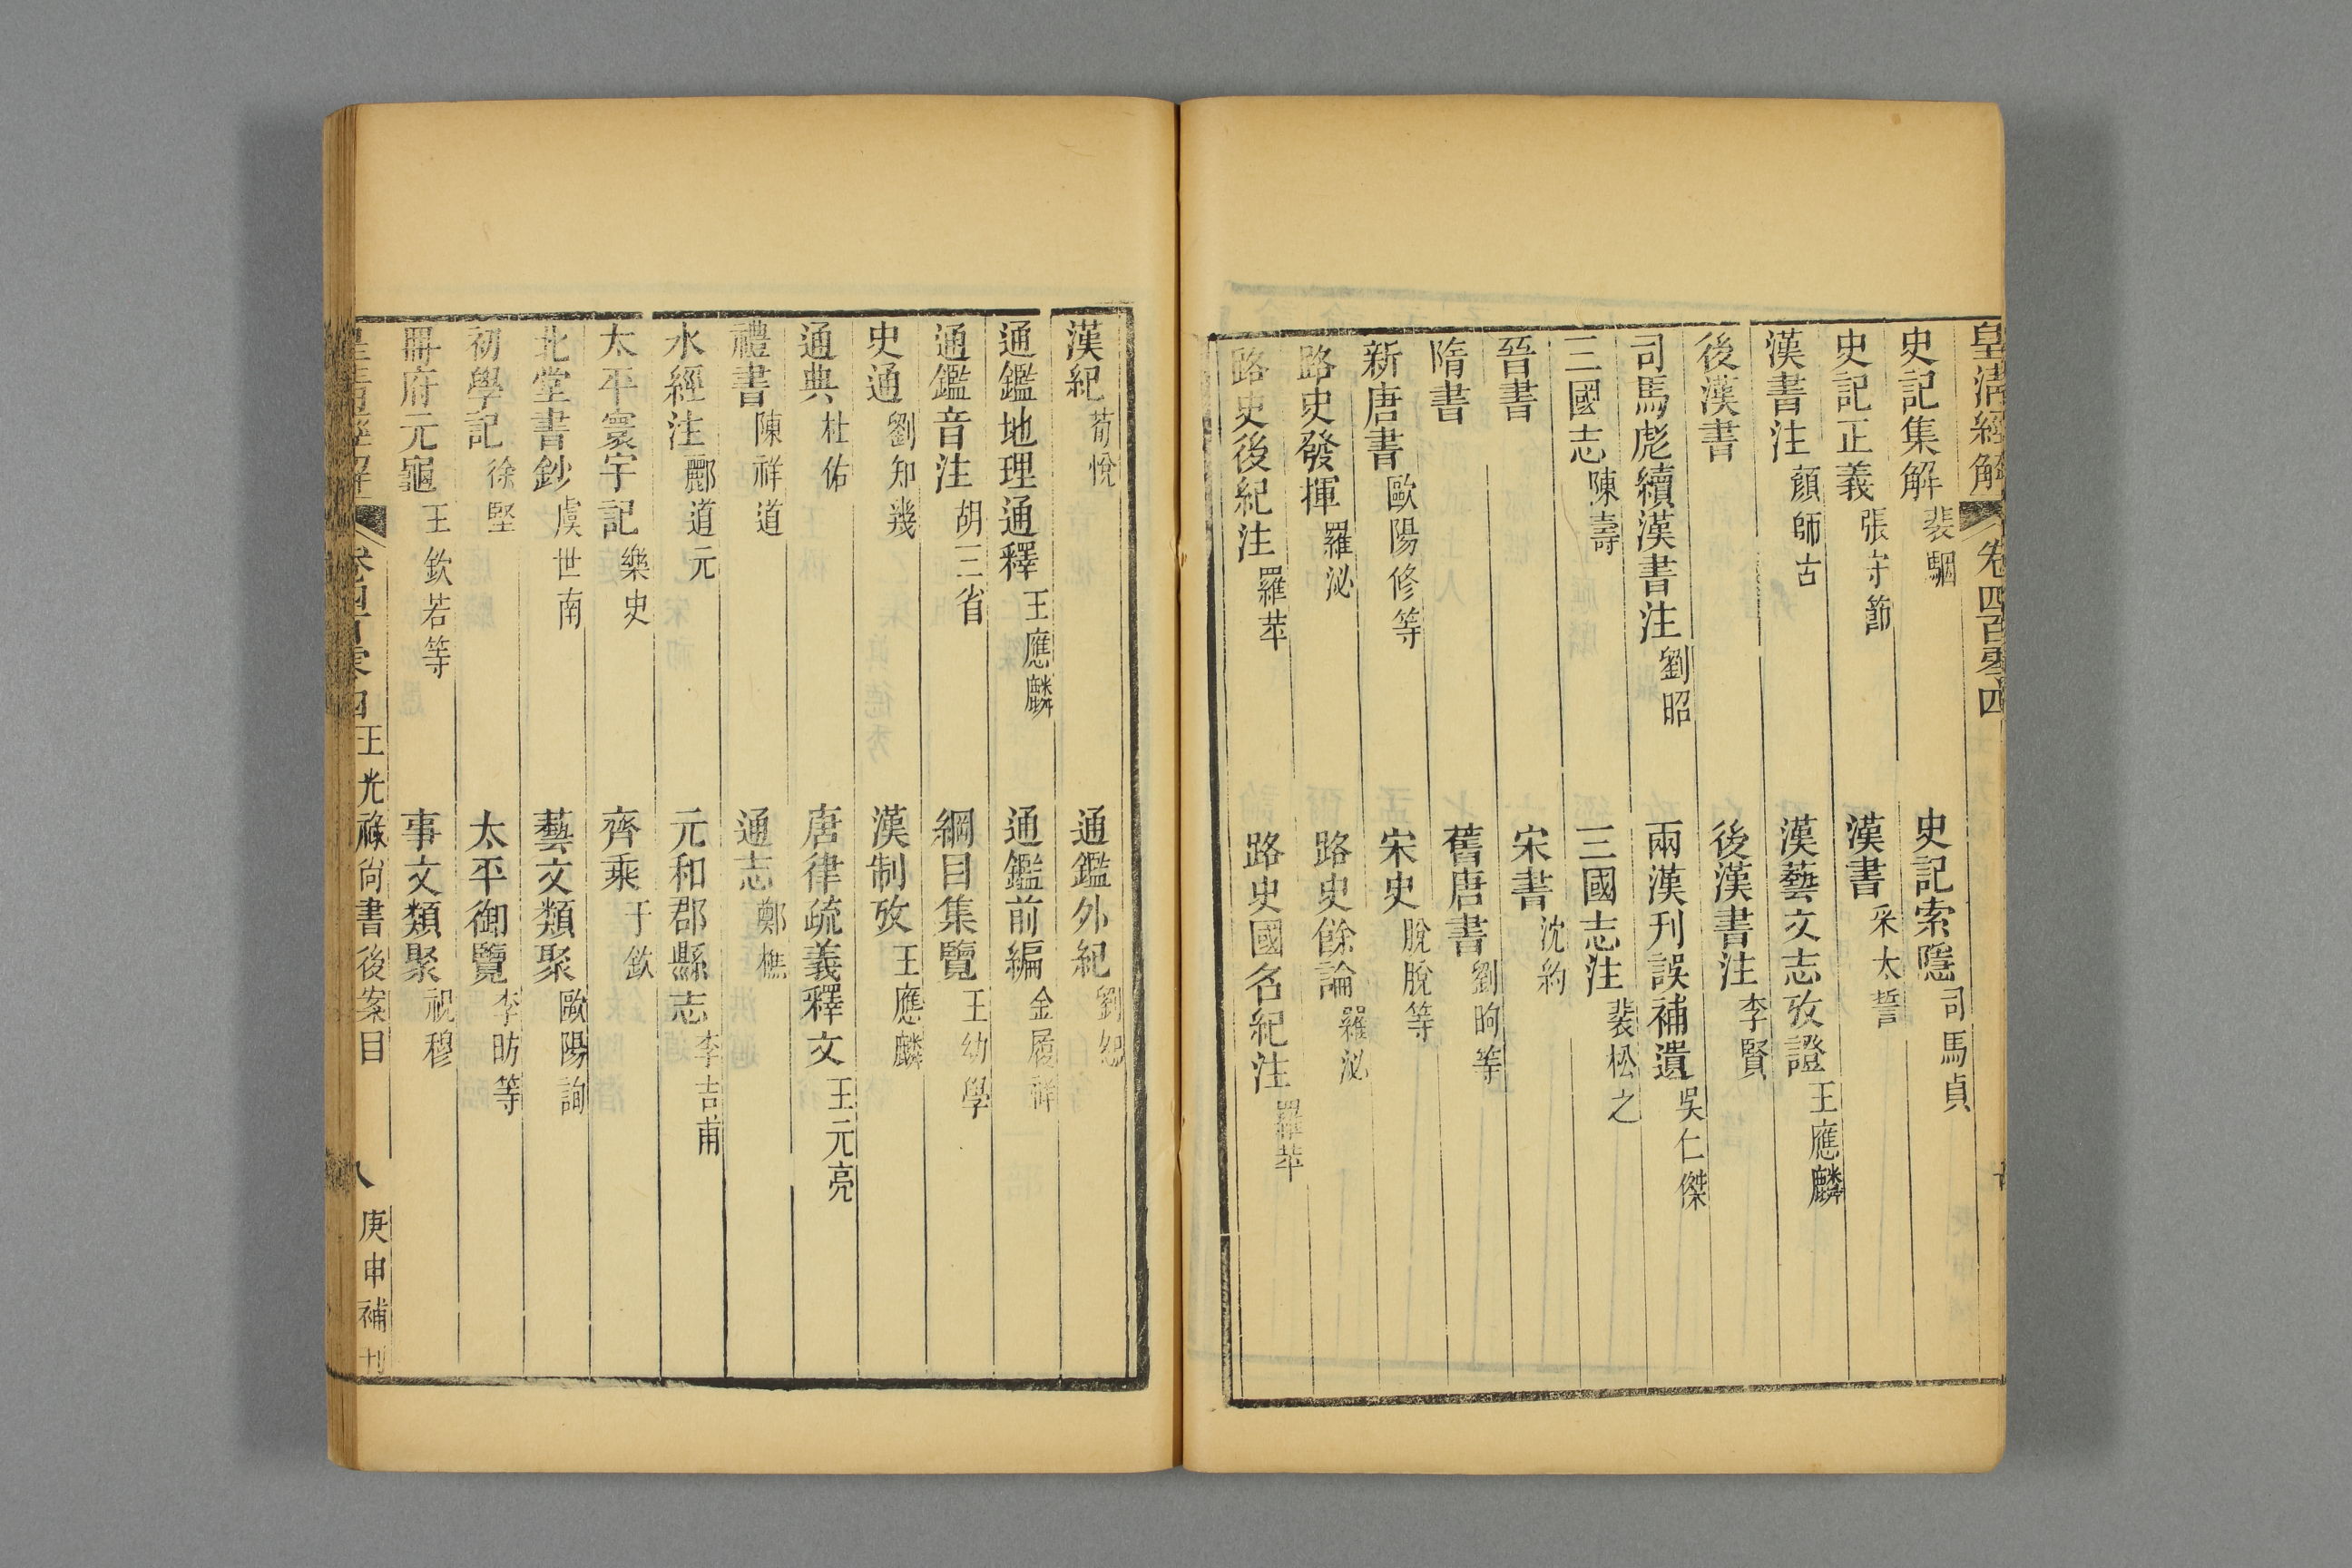 皇清經解 卷四百零四
史記集解 裴駰 史記索隱 司馬貞
史記正義 張守節 漢書 采太誓
漢書注 顏師古 漢藝文志攷證 王應麟
後漢書 後漢書注 李賢
司馬彪續漢書注 劉昭 兩漢刊誤補遺 吳仁傑
三國志 陳壽 三國志注 裴松之
晉書 宋書 沈約
隋書 舊唐書 劉昫等
新唐書 歐陽修等 宋史 脫脫等
路史發揮 羅泌 路史餘論 羅泌
路史後紀注 羅苹 路史國名紀注 羅苹
漢紀 荀悅 通鑑外紀 劉恕
通鑑地理通釋 王應麟 通鑑前編 金履祥
通鑑音注 胡三省 綱目集覽 王幼學
史通 劉知幾 漢制攷 王應麟
通典 杜佑 唐律疏義釋文 王元亮
禮書 陳祥道 通志 鄭樵
水經注 酈道元 元和郡縣志 李吉甫
太平寰宇記 樂史 齊乘 于欽
北堂書鈔 虞世南 藝文類聚 歐陽詢
初學記 徐堅 太平御覽 李昉等
冊府元龜 王欽若等 事文類聚 祝穆
皇清經解 卷四百零四 王光祿尙書後案目 八 庚申補刊